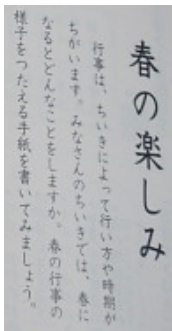 春の楽しみ
行事は、ちいきによって行い方や時期が
ちがいます。みなさんのちいきでは、春に
なるとどんなことをしますか。春の行事の
様子をつたえる手紙を書いてみましょう。